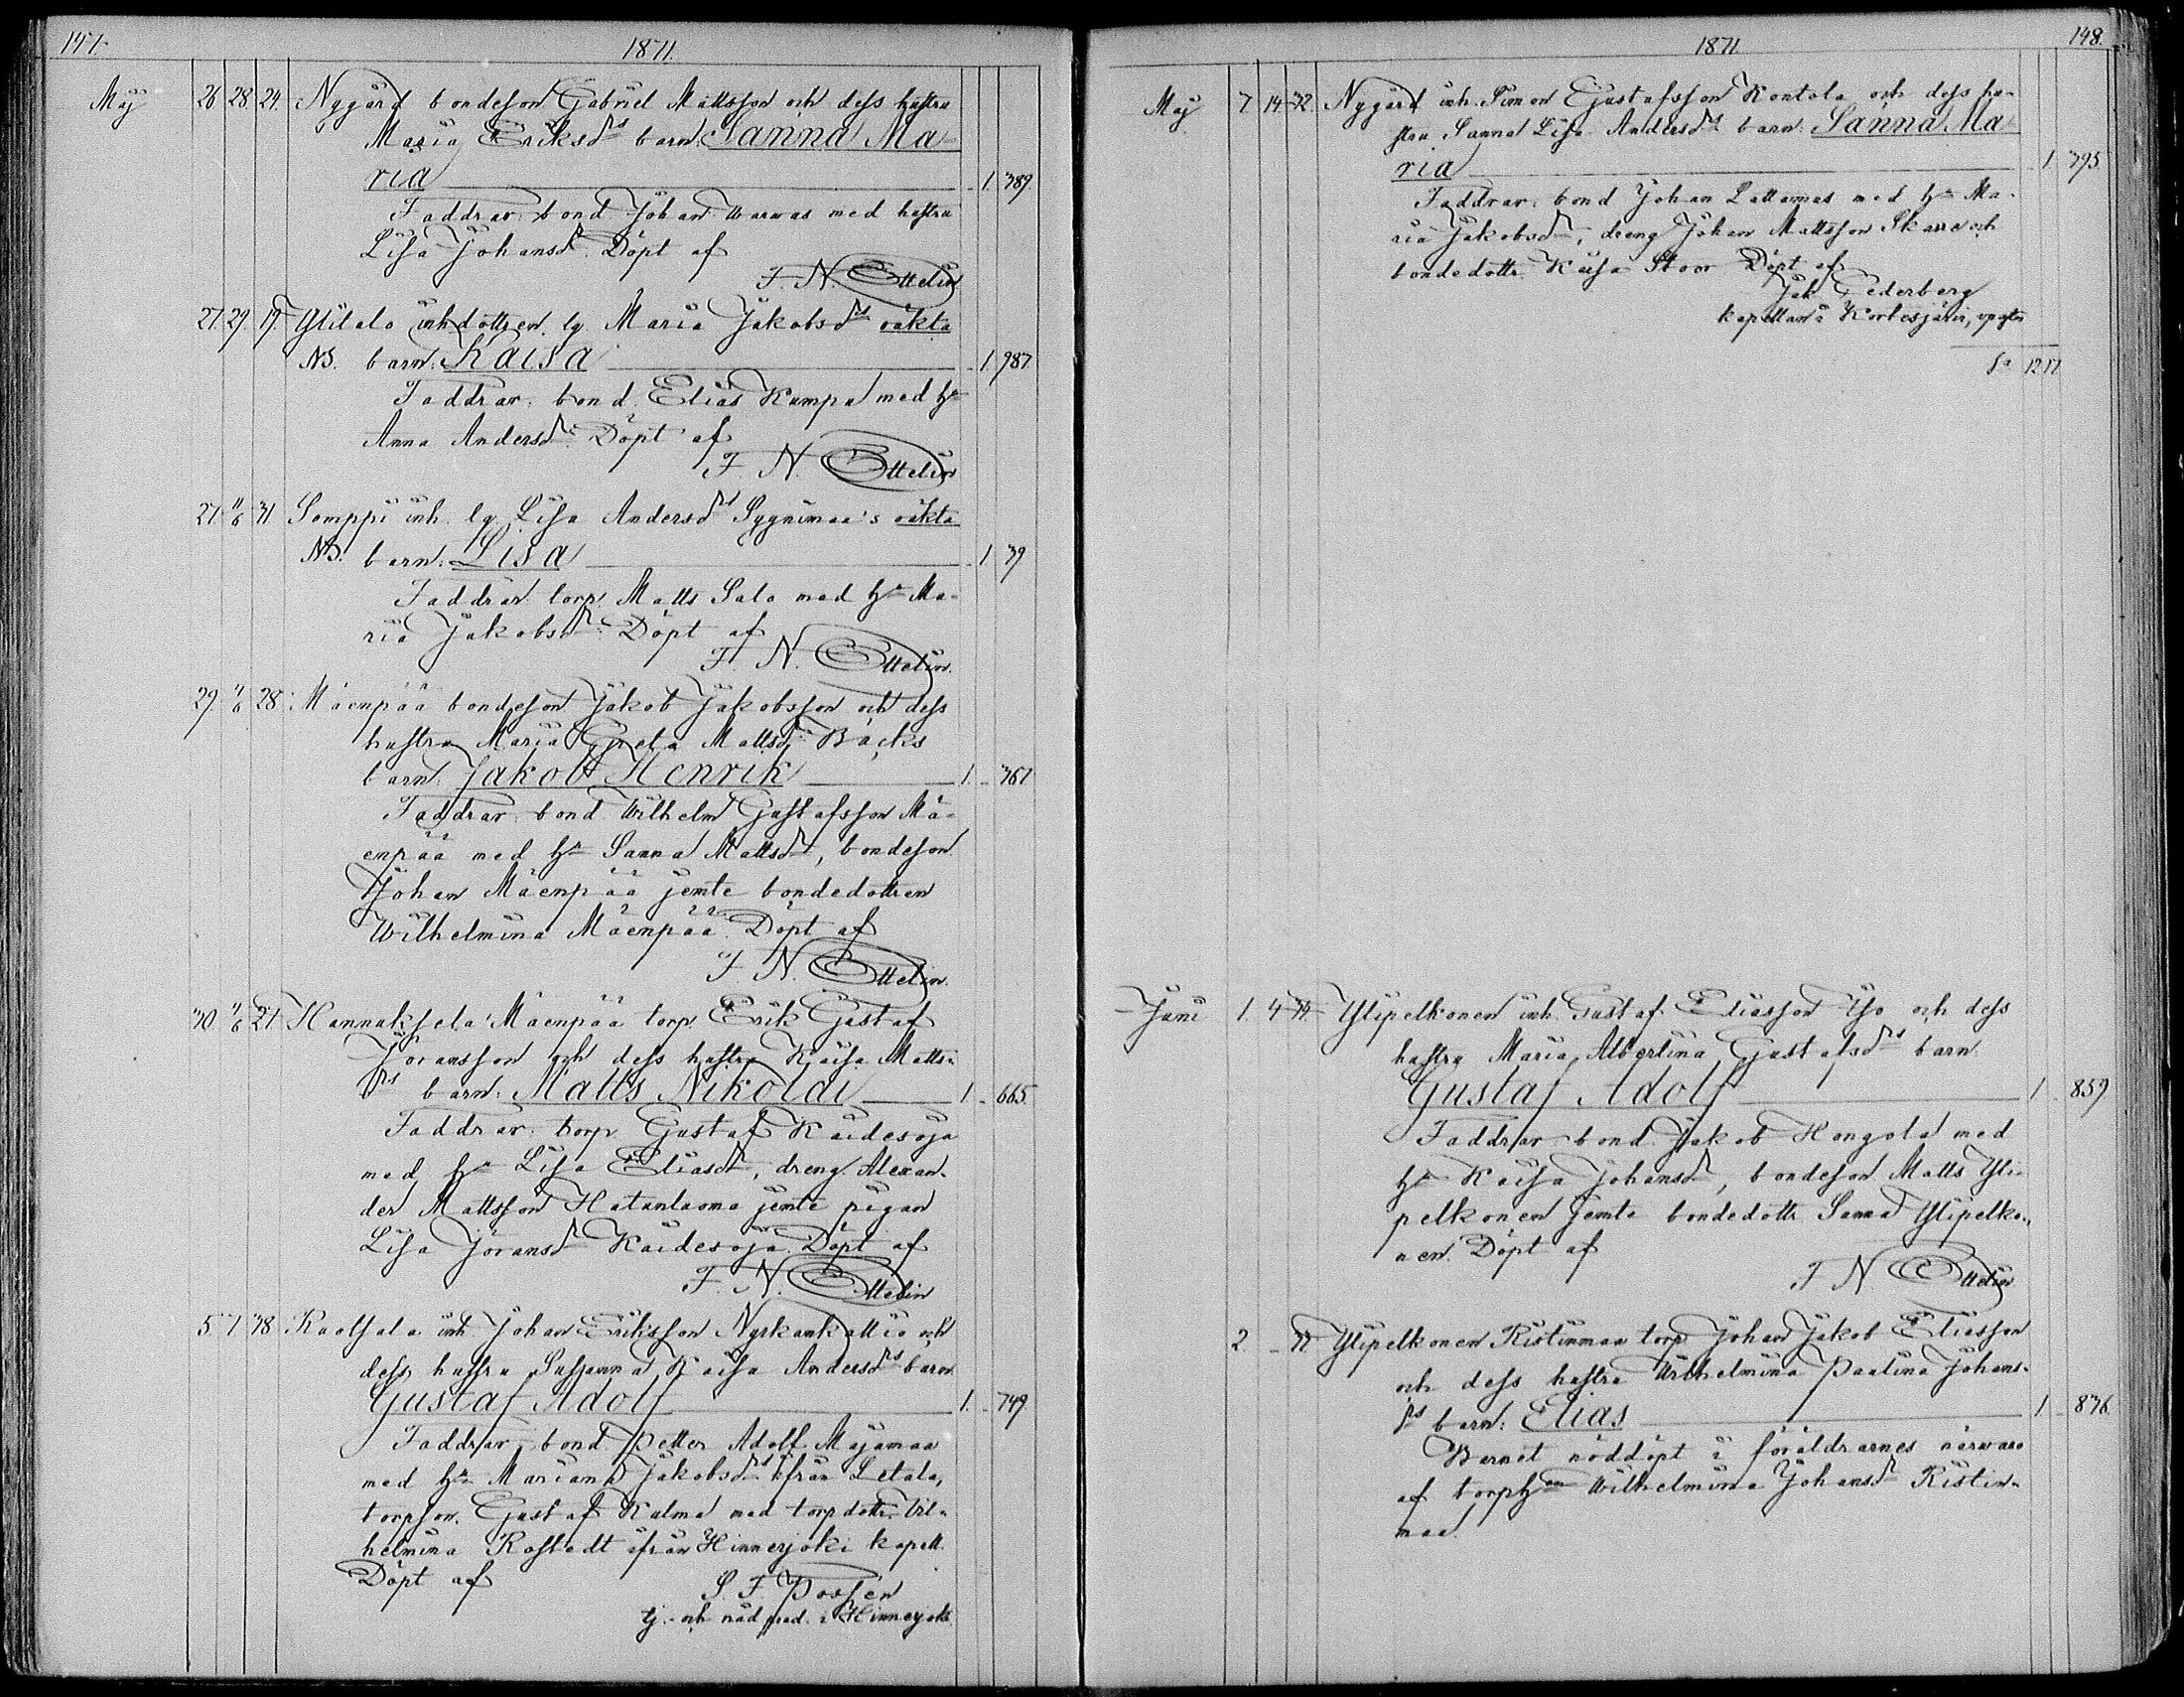 147.
1871.
Maj 26 28 24. Nygård bondeson Gabriel Mattsson och dess hustru
Maria Eriksdrs barn: Sanna Ma-
ria 1. 389.
Faddrar: bond Johan Warwas med hustru
Lisa Johansdr. Döpt af
F. N. Ottelin
27. 29. 19. Ylitalo inh.dottren, lg. Maria Jakobsdrs oäkta
NB. barn: Kaisa 1. 987.
Faddrar: bond. Elias Kampa med hu
Anna Andersdr. Döpt af
F. N. Ottelin
27. 11/6 31 Somppi inh. lg. Lisa Andersdrs Sygnimaa's oäkta
NB. barn: Lisa 1 39
Faddrar: torp. Matts Salo med hu Ma-
ria Jakobsdr. Döpt af
F. N. Ottelin.
29. 11/6 28. Mäenpää bondeson Jakob Jakobsson och dess
hustru Maria Greta Mattsdr Backs
barn: Jakob Henrik 1. 367
Faddrar: bond. Wilhelm Gustafsson Mä-
enpää med hu Sanna Mattsdr, bondeson
Johan Mäenpää jemte bondedottren
Wilhelmina Mäenpää. Döpt af
F. N. Ottelin.
30. 11/6 27 Hannuksela Mäenpää torp. Erik Gustaf
Göransson och dess hustru Kaisa Matts-
drs barn: Matts Nikolai 1 665.
Faddrar: torp. Gustaf Kaidesoja
med hu Lisa Eliasdr, dreng. Alexan-
der Mattsson Hatunlaoma jemte pigan
Lisa Göransdr Kaidesoja. Döpt af
F. N. Ottelin
5. 7 38. Ruotsala inh. Johan Eriksson Nyrkankallio och
dess hustru Susanna Kaisa Andersdrs barn
Gustaf Adolf 1. 749.
Faddrar: bond. Petter Adolf Majamaa
med hu Mariana Jakobsdr ifrån Letala,
torpson. Gustaf Kulma med torpdottr. Wil-
helmina Rostedt ifrån Hinnerjoki kapell.
Döpt af
S. F. Possén
tj. och nåd. pred. i Hinnerjoki
1871.
148.
Maj 7 14 32. Nygård inh. Simon Gustafsson Kontola och dess hu-
stru Sanna Lisa Andersdrs barn: Sanna Ma
ria 1 395.
Faddrar: bond Johan Lattamus med hu Ma-
ria Jakobsdr, dreng Johan Mattsson Skarr och
bondedottr. Kaisa Stoor Döpt af
Jak. Cederberg
kapellan i Kortesjärvi,
Sa 1217.
Juni 1. 4 Ylipelkonen inh. Gustaf Eliasson Yso och dess
hustru Maria Albertina Gustafsdrs barn:
Gustaf Adolf 1. 859.
Faddrar: bond. Jakob Hongola med
hu Kaisa Johansdr, bondeson Matts Yli-
pelkonen jemte bondedottr Sanna Ylipelko-
nen. Döpt af
F. N. Ottelin
2. Ylipelkonen Ristinmaa torp. Johan Jakob Eliasson
och dess hustru Wilhelmina Paulina Johans-
drs barn: Elias 1. 876.
Barnet nöddöpt i föräldrarnes närwaro
af torphun Wilhelmina Johansdr Ristin-
maa.